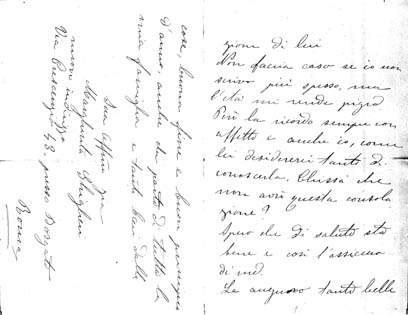 zione di lei
Non faccia caso se io non
scrivo più spesso, ma
l'età mi rende pigra
Però la ricordo sempre con
affetto e anche io, come
lei desidererei tanto di
conoscerla. Chissà che
non avrò questa consola
zione?
Spero che di salute stia
bene e così l'assicuro
di me.
Le auguro tante belle
cose, buona fine e buon principio
d'anno, anche da parte di tutta la
mia famiglia e tanti baci dalla
Sua Affma
Margherita
nuovo indirizzo
Via 43 presso
Roma